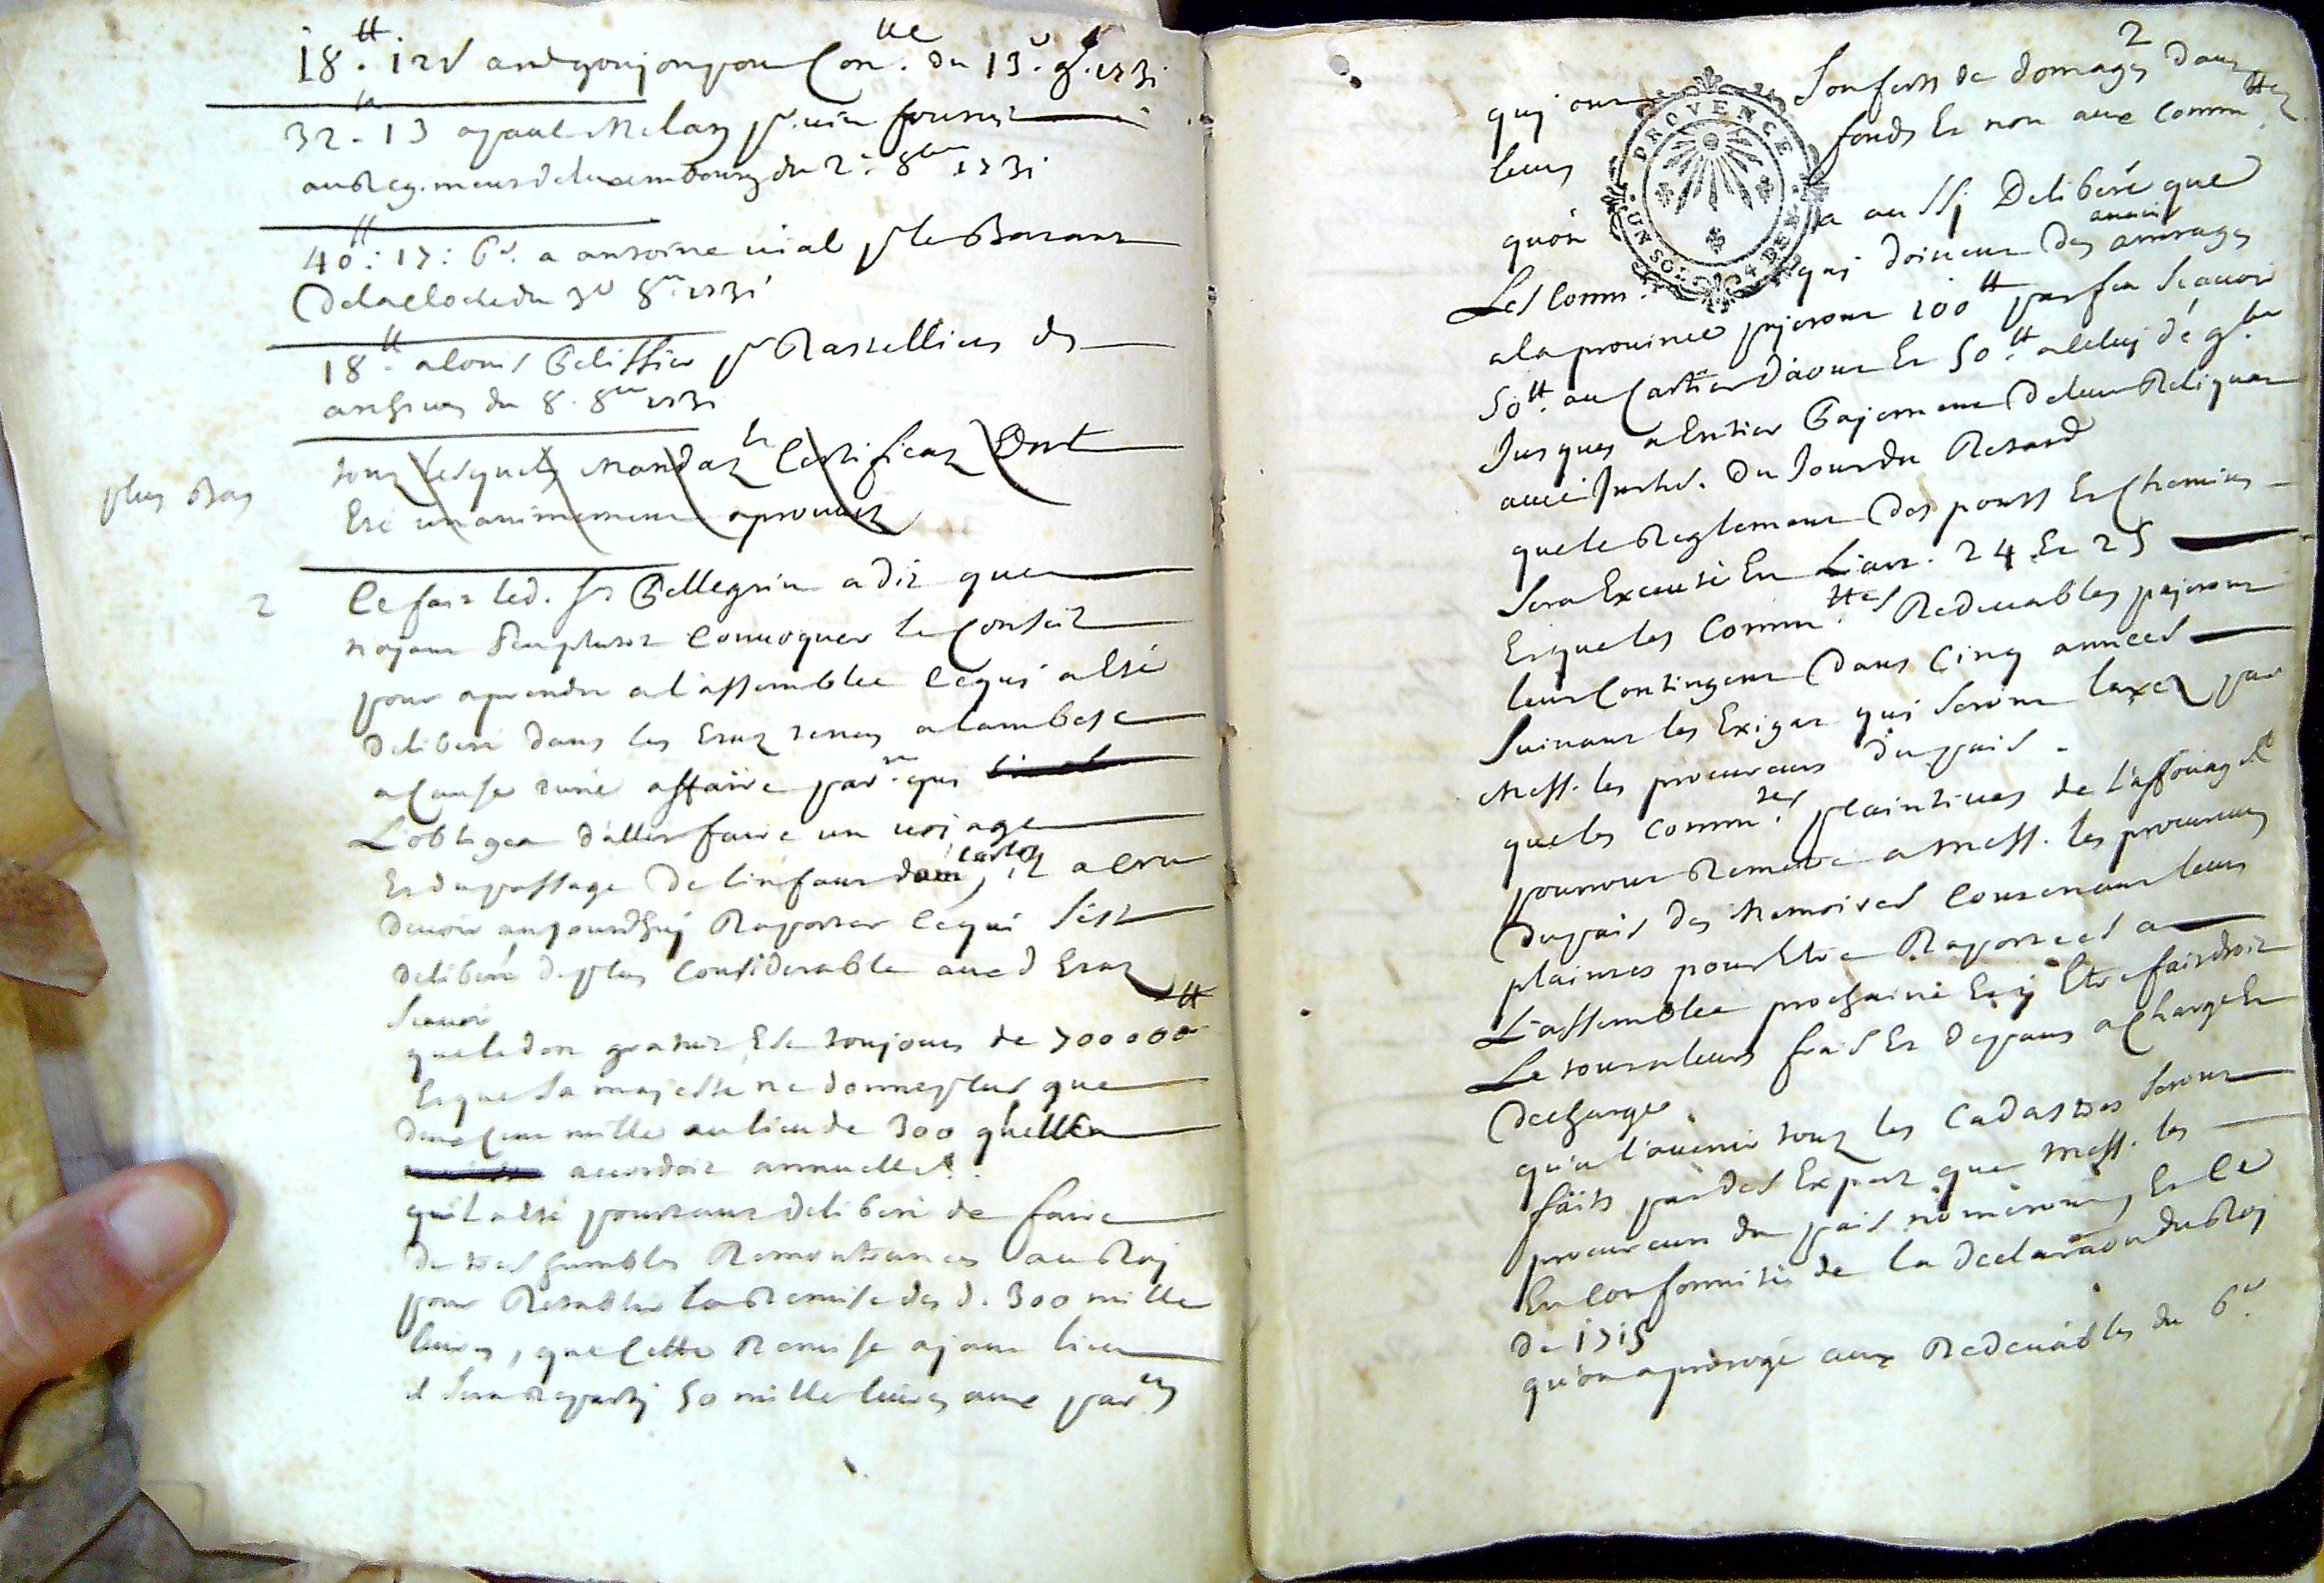 18.tt 12s
32. 13 a paul Melan pr. vin fourni
au Regiment de Luxembourg du 2e 8bre 1731
40tt: 17: 6d. a antoine vial pr le Batant
de la cloche du 3e 8bre 1731
18tt a Louis Pelissier pr Ratellier des
du 8. 8bre 1731
plus Bas
tous lesquels mandatz certificat
Est unanimement aprouvez
2
Ce fait led. Sr Pellegrin a dit que
n'ayant peu plutot Convoquer le Conseil
pour aprendre a l'assemblee Ce qui a Esté
deliberé dans les Etatz tenus a Lambesc
a Cause d'une affaire parre. qui
L'obligea d'aller faire un voiage
Et du passage de l'infant dom Carlos, il a cru
devoir aujourdhuy Raporter Ce qui s'est
deliberé de plus Considerable auxd Etatz
Scavoir
que le don gratuit Est toujours de 700000tt
Et que sa majesté ne donne plus que
deux Cent mille au lieu de 300 qu'elle
accordoit annuellet.
qu'il a Esté pourtant deliberé de faire
de tres humbles Remontrances au Roy
pour Retablir la Remise des d. 300 mille
livres, que Cette Remise ayant lieu
il sera Reparty 50 mille livres aux parers
2
PROVENCE
QUN SOL 4 DEN
quy ont Soufferts de domages dans
leurs fonds Et non aux Commtez.
qu'on a aussy Deliberé que
Les Comm. quy doivent Des arrerages
a la province payeront 100tt par feu Scavoir
50tt. au Cartier d'aout Et 50.tt a celuy de 9bre
Jusques a Entier Payement de leur Reliquat
avec Intts. Du Jour du Retard
que le Reglement des ponts Et Chemins
Sera Executé En L'art. 24 Et 25
Et que les Commttes Redevables payeront
leur Contingent dans Cinq années
Suivant les Exigats qui Seront taxez par
Mess. les procureurs du païs.
que les Commtes plaintives de l'affouage
pourront Remetre a Mess. les procureurs
du païs des Memoires Contenant leurs
plaintes pour Etre Raportées a
L'assemblée prochaine Et y Etre fait droit
Le tout a leurs frais Et depans a Charge Et
decharge.
qu'a l'avenir tous les Cadastres Seront
faits par des Expertz que Mess. les
procureurs du païs nomeront, Et Ce
En Conformité de la declaraon du Roy
de 1715
qu'on a prorogé aux Redevables du 6e.